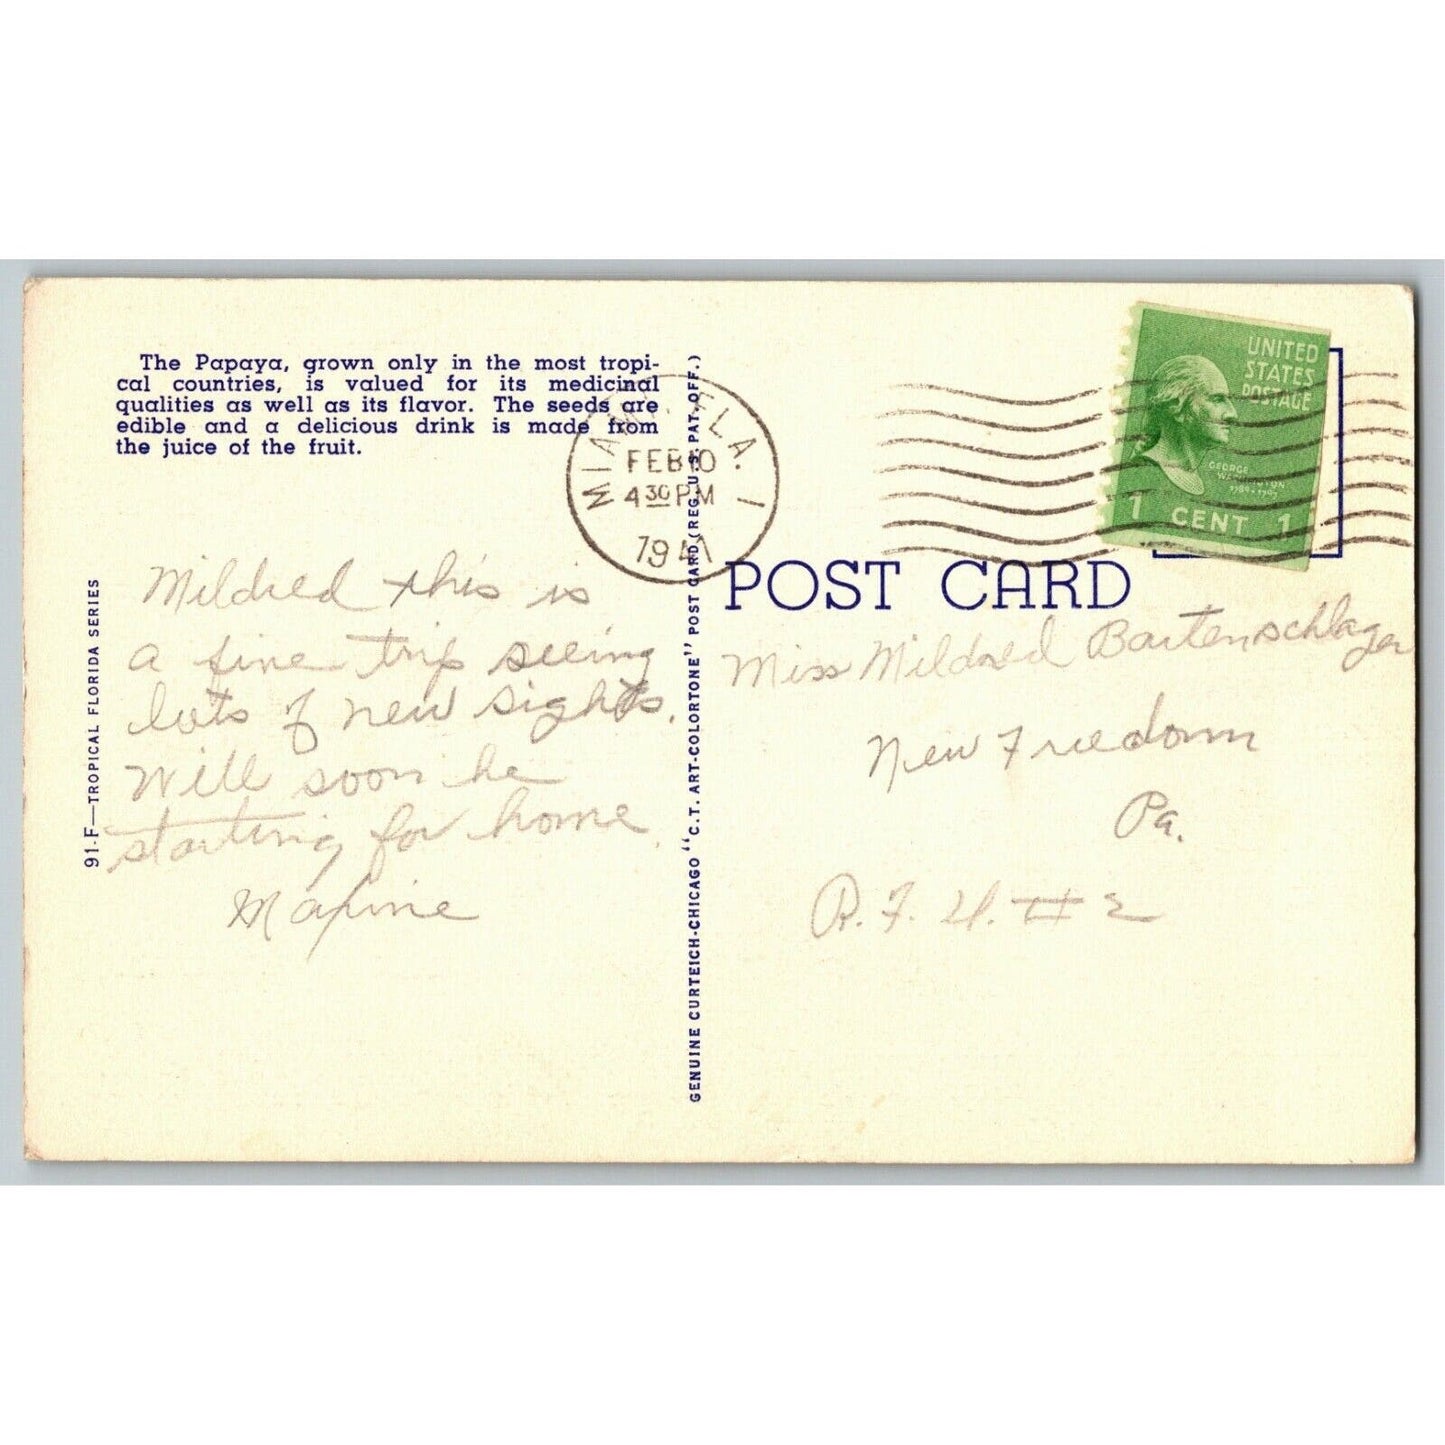 The Papaya, grown only in the most tropi-
cal countries, is valued for its medicinal
qualities as well as its flavor. The seeds are
edible and a delicious drink is made from
the juice of the fruit.
MIAMI, FLA. 1
FEB 10
4 30 PM
1941
UNITED
STATES
POSTAGE
GEORGE
WASHINGTON
1789-1797
1 CENT 1
POST CARD
91-F—TROPICAL FLORIDA SERIES
GENUINE CURTEICH-CHICAGO "C.T. ART-COLORTONE" POST CARD (REG. U.S. PAT. OFF.)
Mildred this is
a fine trip seeing
lots of new sights.
Will soon be
starting for home.
Maxine
Miss Mildred Bartenschlager
New Freedom
Pa.
R.F.D. # 2